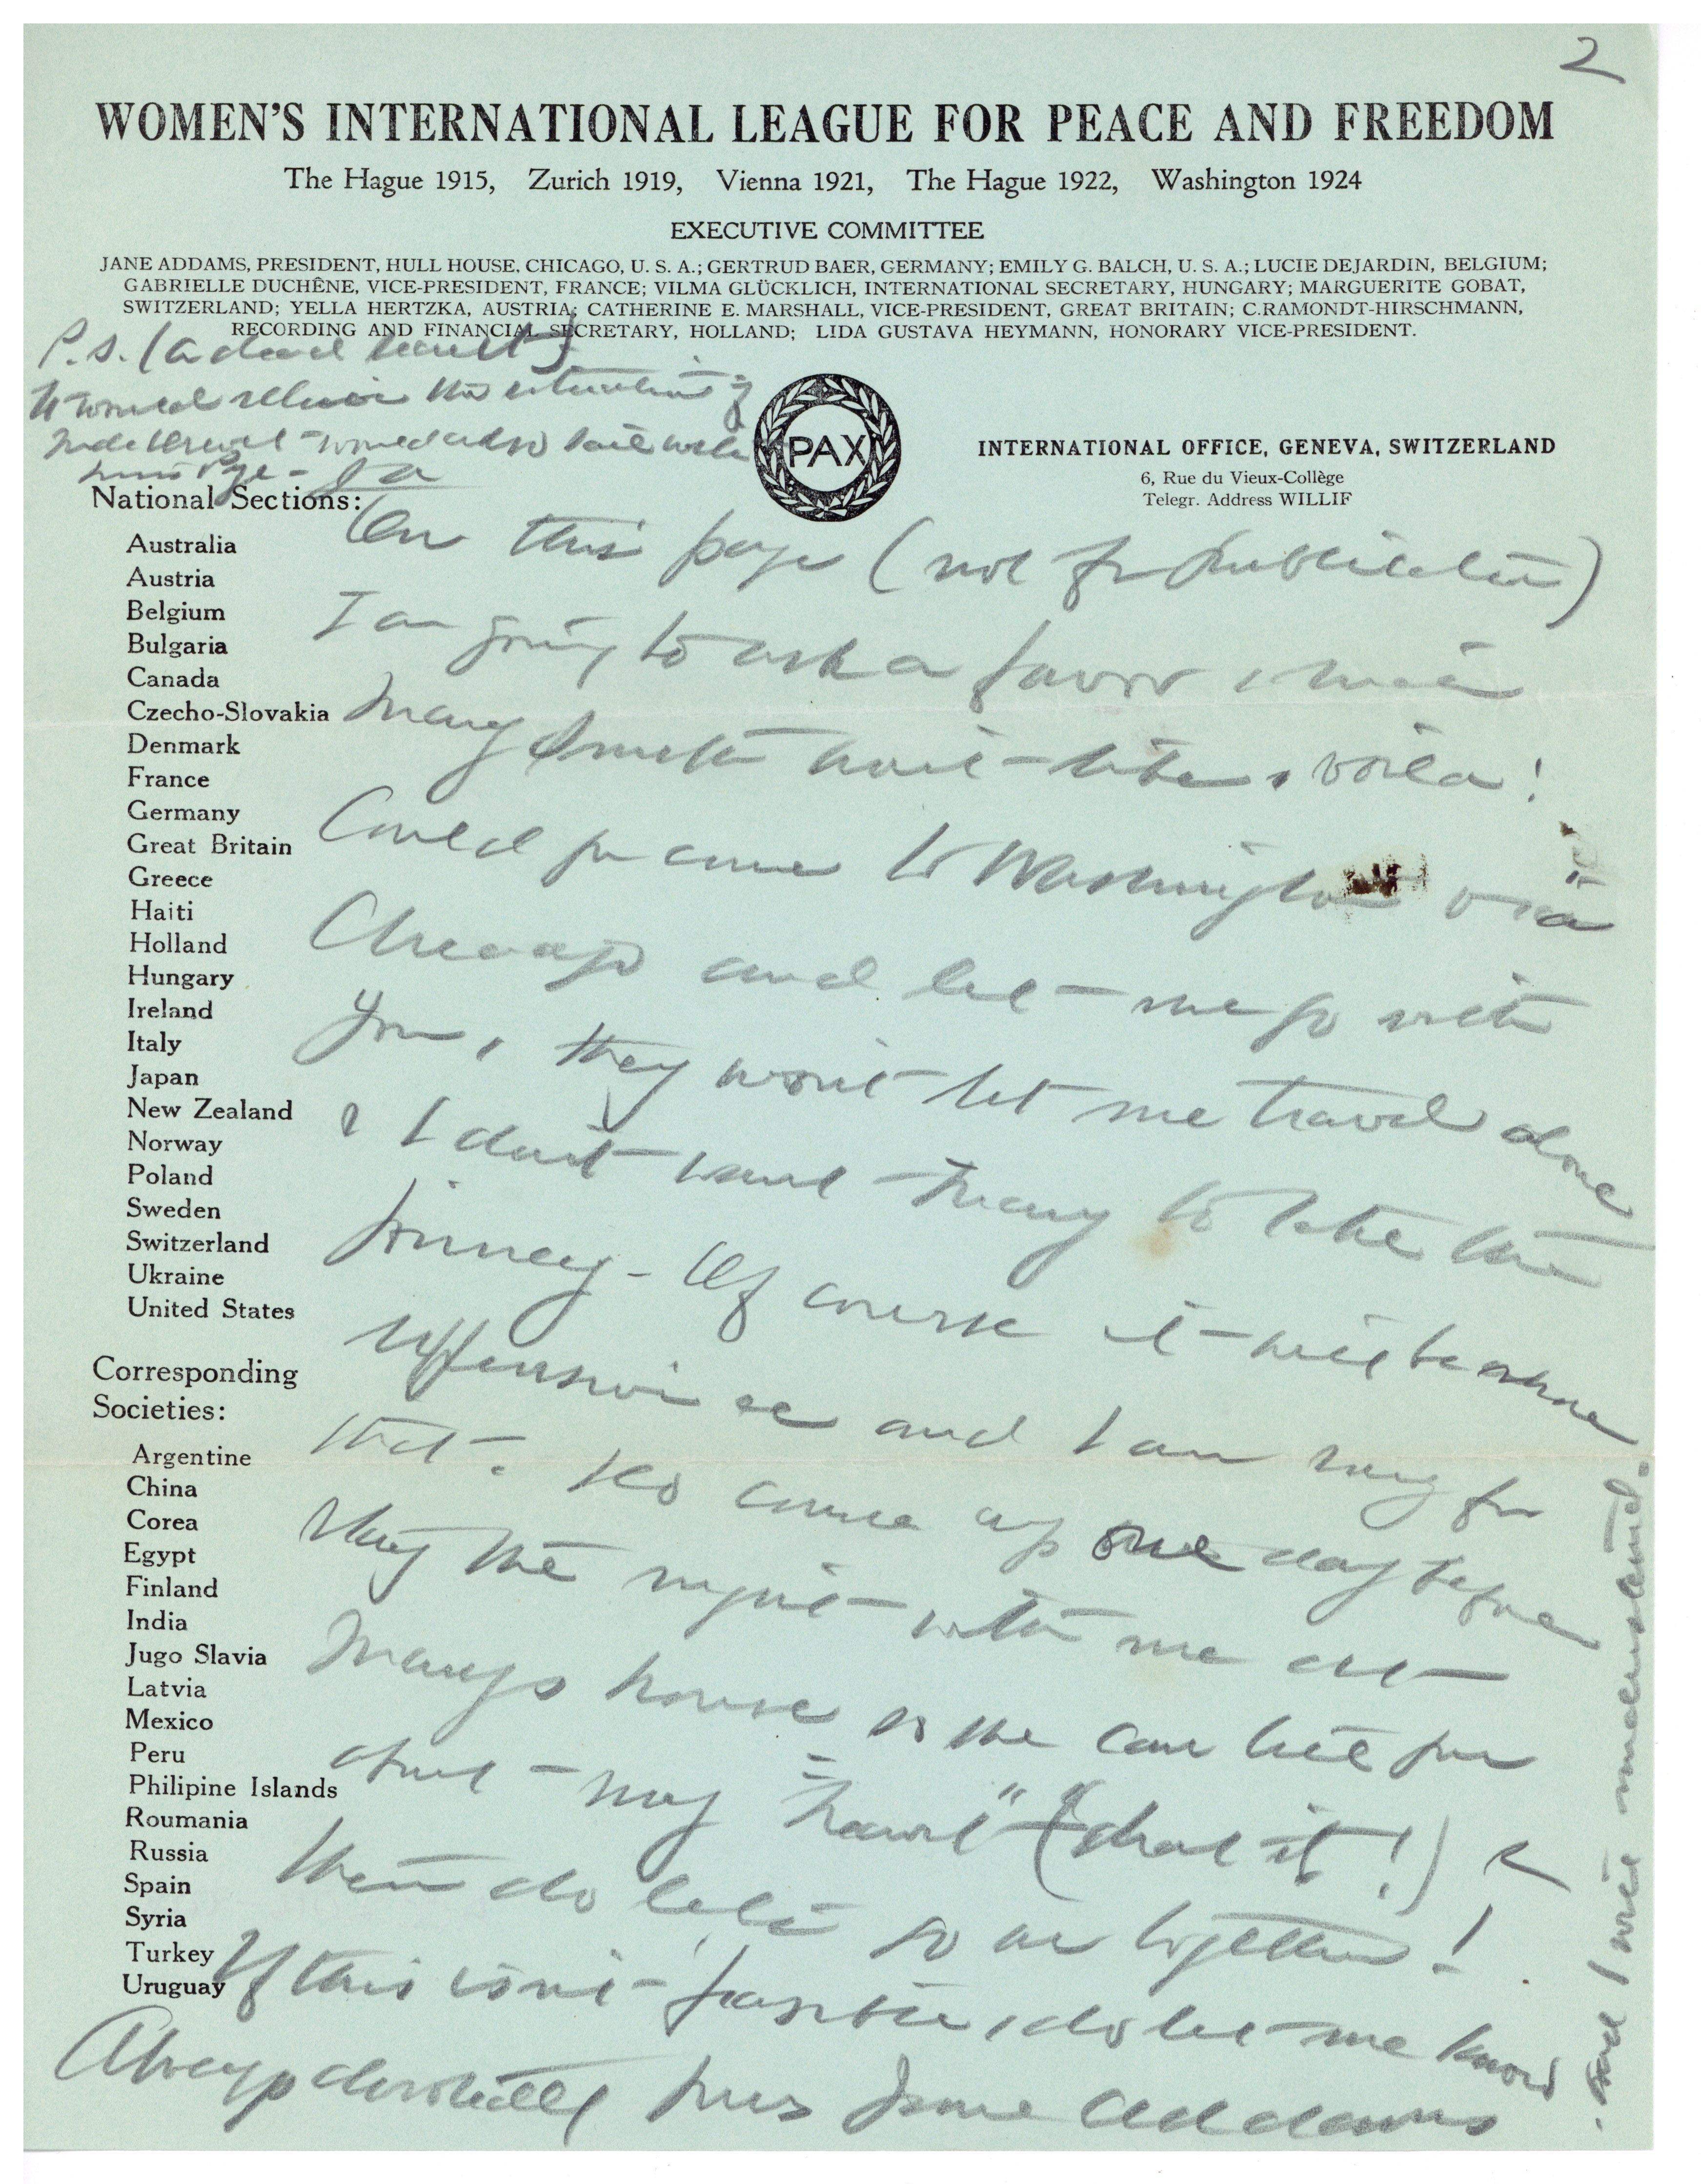 2
WOMEN'S INTERNATIONAL LEAGUE FOR PEACE AND FREEDOM
The Hague 1915, Zurich 1919, Vienna 1921, The Hague 1922, Washington 1924
EXECUTIVE COMMITTEE
JANE ADDAMS, PRESIDENT, HULL HOUSE, CHICAGO, U. S. A.; GERTRUD BAER, GERMANY; EMILY G. BALCH, U. S. A.; LUCIE DEJARDIN, BELGIUM;
GABRIELLE DUCHÊNE, VICE-PRESIDENT, FRANCE; VILMA GLÜCKLICH, INTERNATIONAL SECRETARY, HUNGARY; MARGUERITE GOBAT,
SWITZERLAND; YELLA HERTZKA, AUSTRIA; CATHERINE E. MARSHALL, VICE-PRESIDENT, GREAT BRITAIN; C.RAMONDT-HIRSCHMANN,
RECORDING AND FINANCIAL SECRETARY, HOLLAND; LIDA GUSTAVA HEYMANN, HONORARY VICE-PRESIDENT.
PAX
INTERNATIONAL OFFICE, GENEVA, SWITZERLAND
6, Rue du Vieux-Collège
Telegr. Address WILLIF
National Sections:
Australia
Austria
Belgium
Bulgaria
Canada
Czecho-Slovakia
Denmark
France
Germany
Great Britain
Greece
Haiti
Holland
Hungary
Ireland
Italy
Japan
New Zealand
Norway
Poland
Sweden
Switzerland
Ukraine
United States
Corresponding
Societies:
Argentine
China
Corea
Egypt
Finland
India
Jugo Slavia
Latvia
Mexico
Peru
Philipine Islands
Roumania
Russia
Spain
Syria
Turkey
Uruguay
P.S. (a dead secret)
It would relieve the situation if
would also
On this page (not for publication)
I am going to ask a favor which
Mary Smith
voila!
Could you come to Washington via
Chicago and let me go with
you, they won't let me travel alone
& I don't want Mary to take the
journey - Of course it will be more
expensive and I am sorry for
that. Do come up one day before
stay the night with me at
Mary's house so she can tell you
about my "heart" (drat it!) &
then do let's go on together!
If this isn't possible, do let me know
Always devotedly yours Jane Addams
and I will understand.